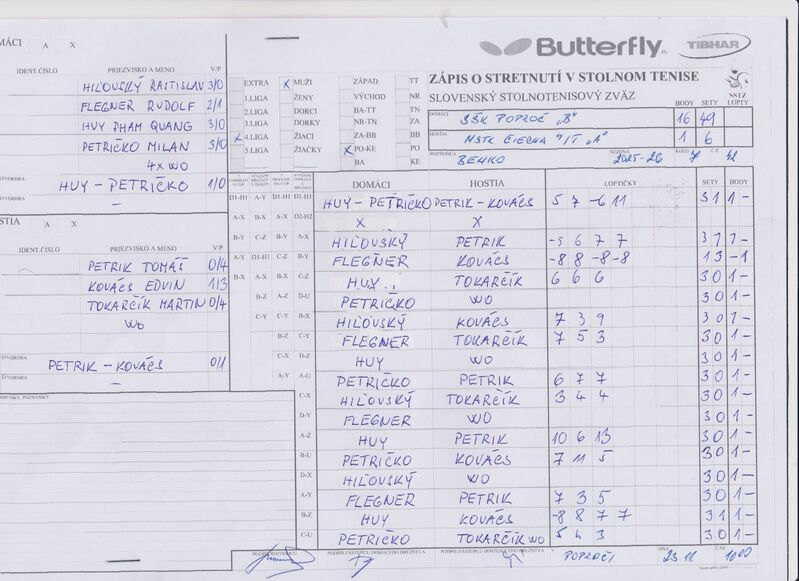 Butterfly TIBHAR
MÁCI A X
IDENT.ČÍSLO PRIEZVISKO A MENO V/P
HIĽOVSKÝ RASTISLAV 3/0
FLEGNER RUDOLF 2/1
HUY PHAM QUANG 3/0
PETRIČKO MILAN 3/0
4x WO
HUY - PETRIČKO 1/0
–
STIA A X
IDENT.ČÍSLO PRIEZVISKO A MENO V/P
PETRIK TOMÁŠ 0/4
KOVÁCS EDVIN 1/3
TOKARČÍK MARTIN 0/4
WO
PETRIK - KOVÁCS 0/1
–
EXTRA X MUŽI ZÁPAD TT
1.LIGA ŽENY VÝCHOD NR
2.LIGA DORCI BA-TT TN
3.LIGA DORKY NR-TN ZA
X 4.LIGA ŽIACI ZA-BB BB
5.LIGA ŽIAČKY X PO-KE PO
BA KE
ZÁPIS O STRETNUTÍ V STOLNOM TENISE
SLOVENSKÝ STOLNOTENISOVÝ ZVÄZ SSTZ
BODY SETY LOPTY
DOMÁCI ŠŠK POPROČ "B" 16 49
HOSTIA MSTK ČIERNA n/T "A" 1 6
ROZHODCA BENKO SEZÓNA 2025-26 KOLO 7 ČZ 42
DOMÁCI HOSTIA LOPTIČKY SETY BODY
D1-H1 A-Y D1-H1 D1-H1 HUY - PETRIČKO PETRIK - KOVÁCS 5 7 -6 11 3 1 1 –
A-X B-X A-X D2-H2 X X
B-Y C-Z B-Y A-X HIĽOVSKÝ PETRIK -5 6 7 7 3 1 1 –
A-Y D1-H1 C-Z B-Y FLEGNER KOVÁCS -8 8 -8 -8 1 3 – 1
B-X A-X B-X C-Z HUY TOKARČÍK 6 6 6 3 0 1 –
B-Z A-Z D-U PETRIČKO WO 3 0 1 –
C-Y C-Y B-X HIĽOVSKÝ KOVÁCS 7 3 9 3 0 1 –
B-Z C-Y FLEGNER TOKARČÍK 7 5 3 3 0 1 –
C-X D-Z HUY WO 3 0 1 –
A-Y A-U PETRIČKO PETRIK 6 7 7 3 0 1 –
C-X HIĽOVSKÝ TOKARČÍK 3 4 4 3 0 1 –
D-Y FLEGNER WO 3 0 1 –
A-Z HUY PETRIK 10 6 13 3 0 1 –
B-U PETRIČKO KOVÁCS 7 11 5 3 0 1 –
D-X HIĽOVSKÝ WO 3 0 1 –
A-Y FLEGNER PETRIK 7 3 5 3 0 1 –
B-Z HUY KOVÁCS -8 8 7 7 3 1 1 –
C-U PETRIČKO TOKARČÍK WO 5 4 3 3 0 1 –
PODPIS ROZHODCU PODPIS ZÁSTUPCU DOMÁCEHO DRUŽSTVA PODPIS ZÁSTUPCU HOSŤUJÚCEHO DRUŽSTVA V POPROČI DŇA 23.11. ČAS 1000